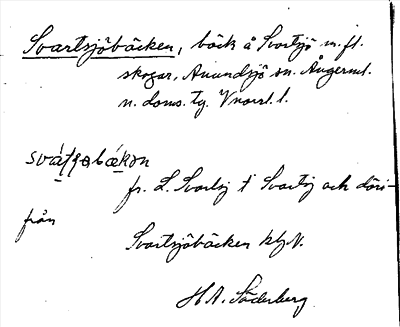 Svartsjöbäcken, bäck å Svartsjö m. fl.
skogar, Anundsjö sn. Ångerml.
n. doms. tg. Vnorrl. l.
fr. L. Svartsj t Svartsj och däri-
från
Svartsjöbäcken kfN.
H A. Söderberg